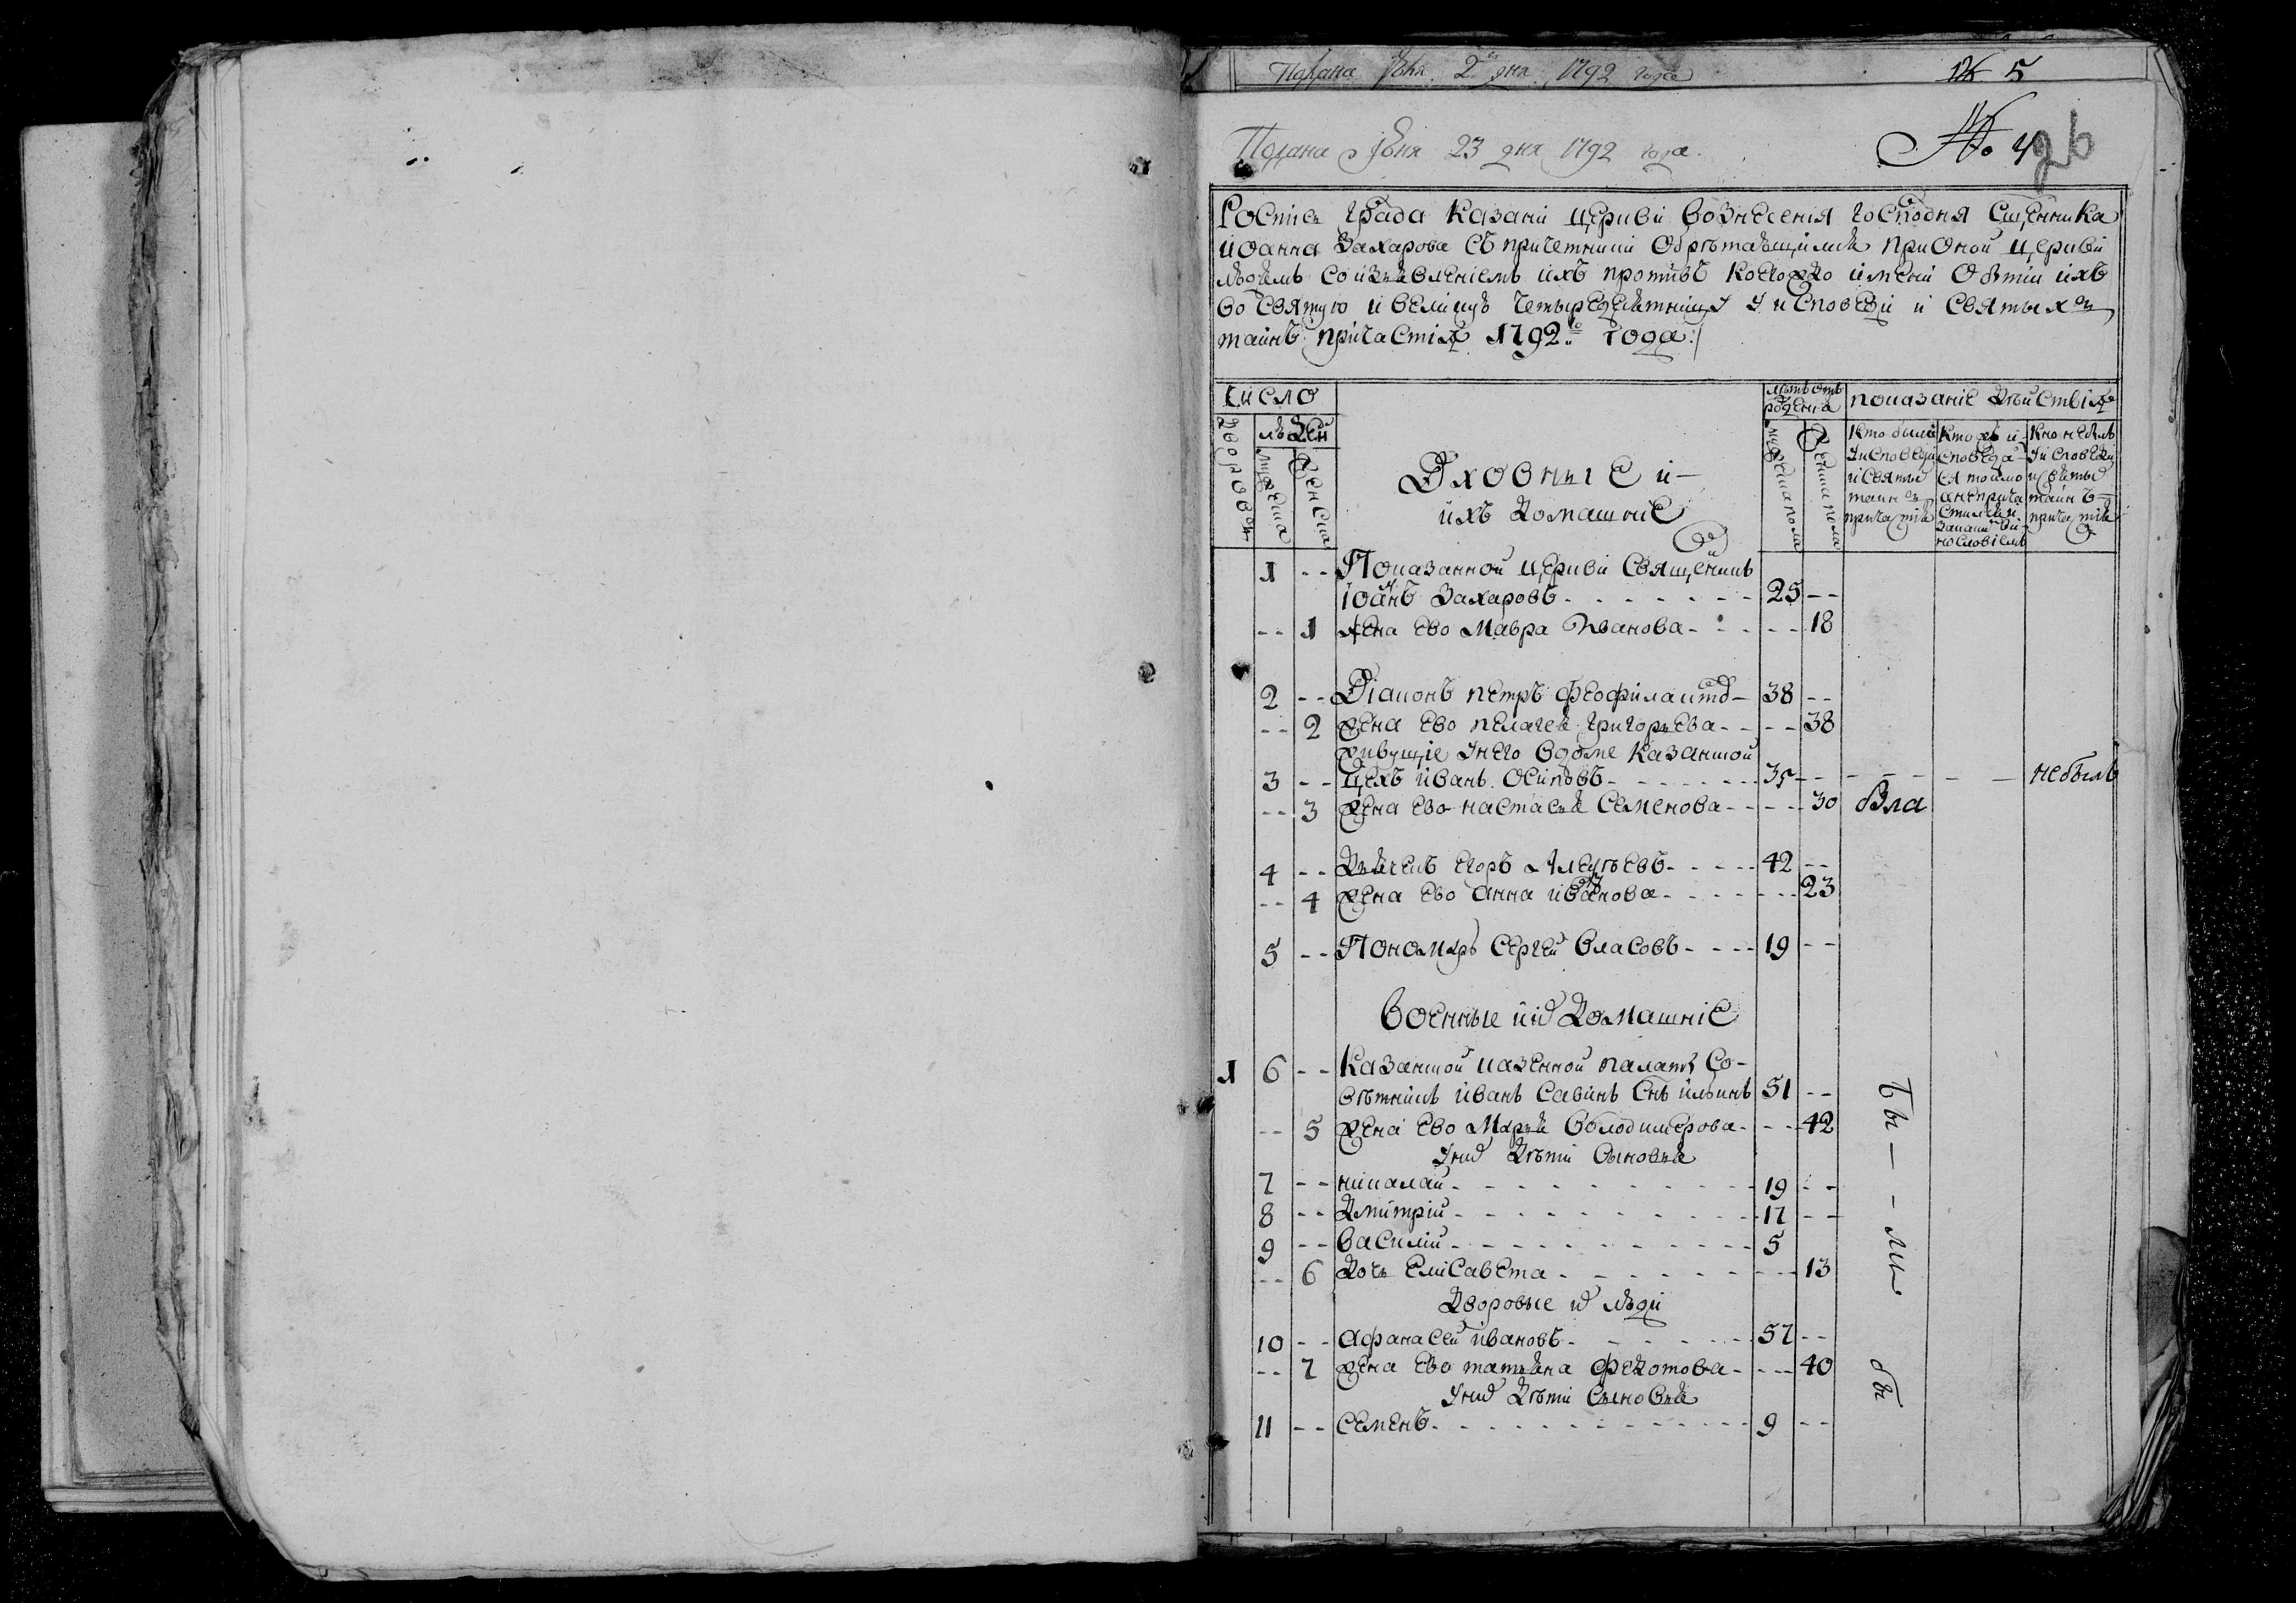 Подана Июня 2 дня 1792 года № 5
Подана Июня 23 дня 1792 года. № 4
26
Роспись града Казани церкви Вознесения Господня Сщенника
Иоанна Захарова съ причетники обретающимися при оной церкви
людемъ со изъявлениемъ ихъ противъ коегождо имени о бытии ихъ
во святую и великую четыредесятницу у исповеди и святыхъ
таинъ причастия 1792го года:
Число
Дворовъ
людей
мужеска
женска
Духовныіе и
ихъ домашніе
летъ отъ
рожения
мужеска пола
женска пола
показаніе действія
Кто были
у исповеди
и святыхъ
таинъ
причастія
Кто и
споведа
ся токмо
а не прича
стился и
за какимъ ви
нословіемъ
Кто не былъ
у исповеди
и святыхъ
таинъ
причастія
1 -- Показанной церкви священникъ
Іоаннъ Захаровъ - 25 --
-- 1 жена ево Мавра Иванова - -- 18
2 -- Діаконъ Петръ Феофилактовъ - 38 --
-- 2 жена ево Пелагея Григорьева - -- 38
живущіе у него в доме казанской
3 -- цехъ Иванъ Осиповъ - 35 -- не былъ
-- 3 жена ево Настасья Семенова - -- 30 была
4 -- Дьячекъ Егоръ Алексѣевъ - 42 --
-- 4 жена ево Анна Иванова - -- 23
5 -- Пономарь Сергей Власовъ - 19 --
Военные и ихъ домашніе
1 6 -- Казанской казенной палаты Со-
вѣтникъ Иванъ Савинъ Снъ Ильинъ 51 --
-- 5 жена ево Марья Володимерова - -- 42
У нихъ дѣти сыновья
7 -- Николай - 19 --
8 -- Дмитрій - 17 --
9 -- Василій - 5
-- 6 Дочь Елисавета - -- 13
Дворовые их люди
10 -- Афанасей Ивановъ - 57 --
-- 7 жена ево Татьяна Федотова - -- 40
У нихъ дѣти сыновья
11 -- Семенъ - 9 --
Бы - - ли
бы